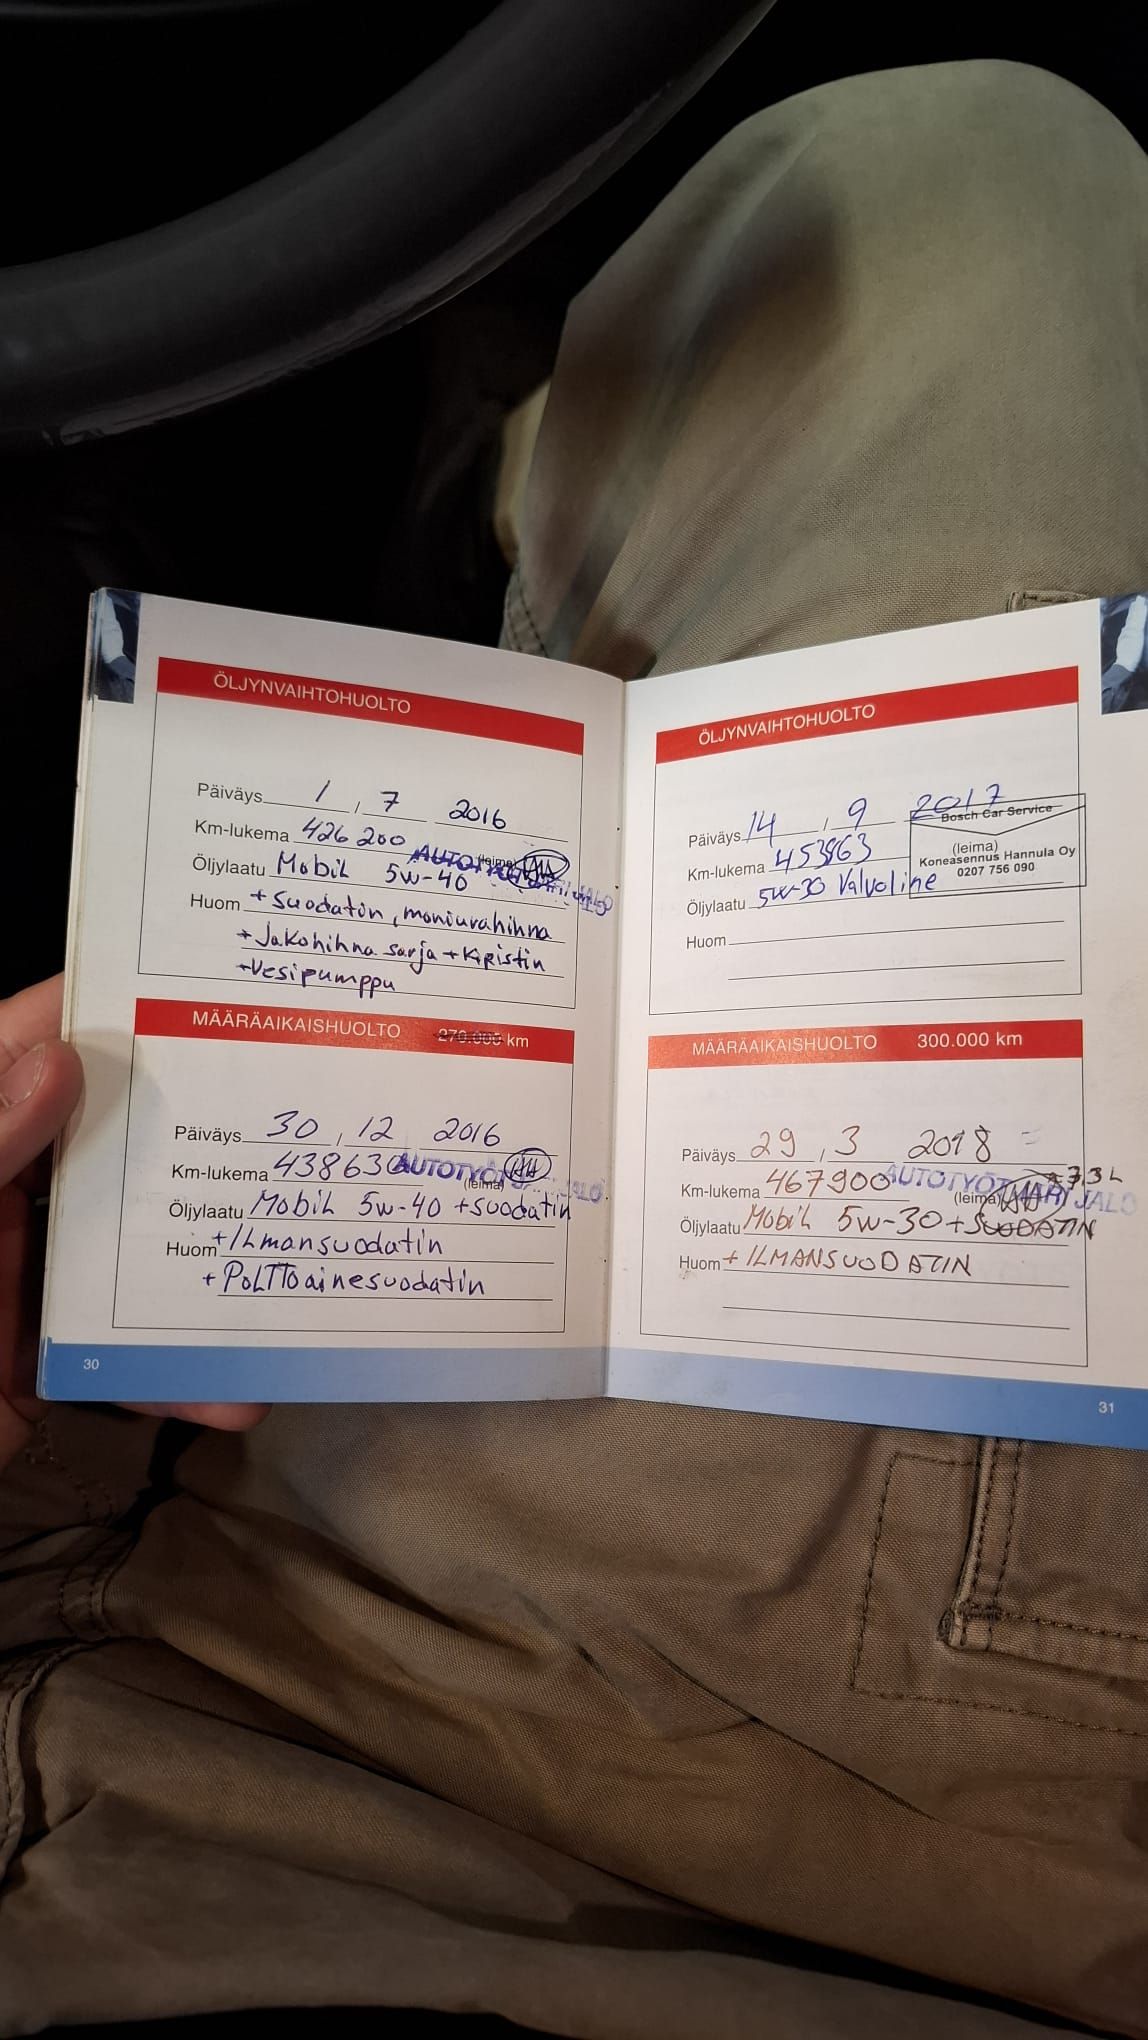 ÖLJYNVAIHTOHUOLTO
Päiväys 1 , 7 2016
Km-lukema 426 200 (leima)
Öljylaatu Mobil 5w-40
Huom + suodatin, moniurahihna
+ Jakohihna sarja + Kiristin
+ Vesipumppu
MÄÄRÄAIKAISHUOLTO 270.000 km
Päiväys 30 , 12 2016
Km-lukema 438630 AUTOTYÖT JALO
(leima)
Öljylaatu Mobil 5w-40 + suodatin
Huom + Ilmansuodatin
+ Polttoainesuodatin
30
ÖLJYNVAIHTOHUOLTO
Päiväys 14 , 9 2017
Bosch Car Service
Km-lukema 453863 (leima)
Koneasennus Hannula Oy
0207 756 090
Öljylaatu 5W-30 Valvoline
Huom
MÄÄRÄAIKAISHUOLTO 300.000 km
Päiväys 29 , 3 2018
Km-lukema 467900 AUTOTYÖT HARI JALO
(leima)
Öljylaatu Mobil 5w-30 + SUODATIN
Huom + ILMANSUODATIN
31